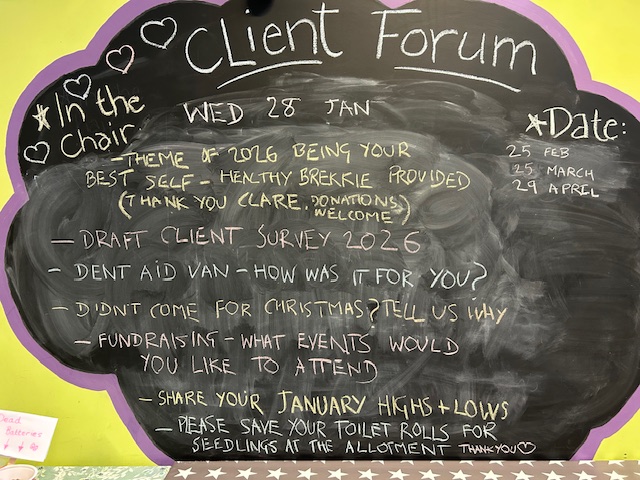 CLient Forum
* In the
Chair:
WED 28 JAN
* Date:
25 FEB
25 MARCH
29 APRIL
- THEME OF 2026 BEING YOUR
BEST SELF - HEALTHY BREKKIE PROVIDED
(THANK YOU CLARE. DONATIONS
WELCOME)
- DRAFT CLIENT SURVEY 2026
- DENT AID VAN - HOW WAS IT FOR YOU?
- DIDNT COME FOR CHRISTMAS? TELL US WHY
- FUNDRAISING - WHAT EVENTS WOULD
YOU LIKE TO ATTEND
- SHARE YOUR JANUARY HIGHS + LOWS
- PLEASE SAVE YOUR TOILET ROLLS FOR
SEEDLINGS AT THE ALLOTMENT THANK YOU♡
Dead
Batteries